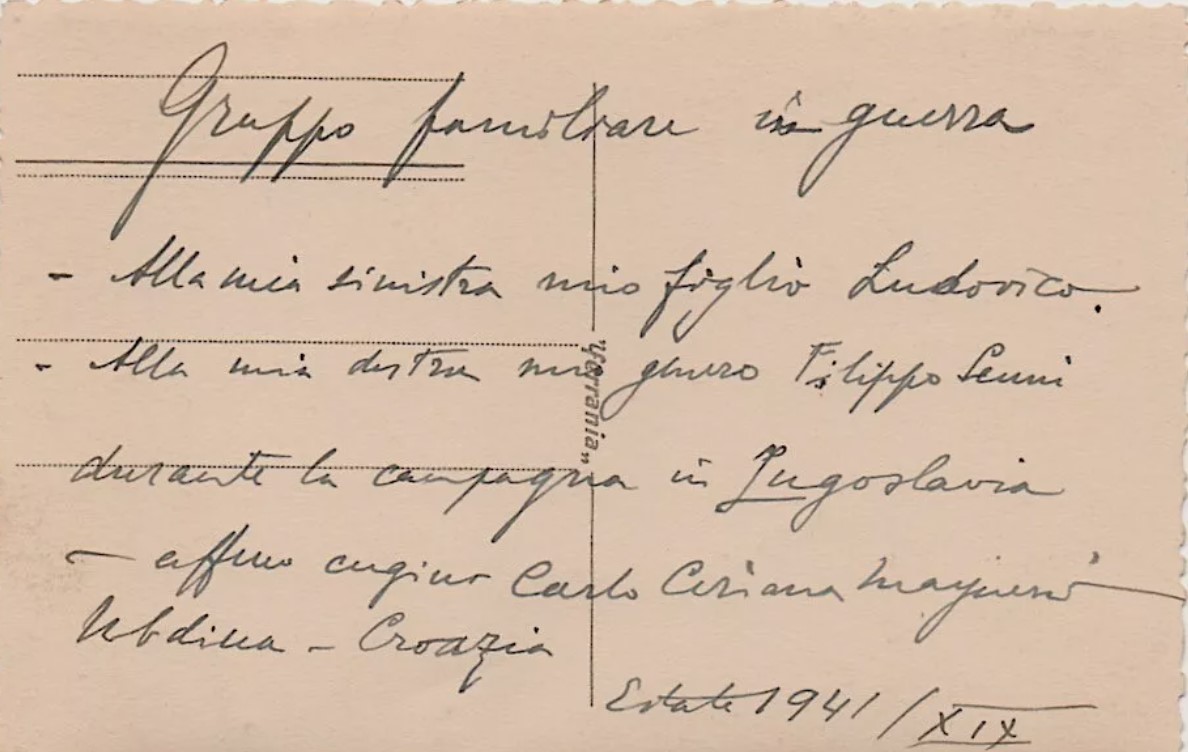 Gruppo familiare in guerra
- Alla mia sinistra mio figlio Ludovico.
- Alla mia destra mio genero Filippo Senni
durante la campagna in Jugoslavia
- affmo cugino Carlo Ceriana Mayneri
Udbina - Croazia
Estate 1941/XIX
"Ferrania"